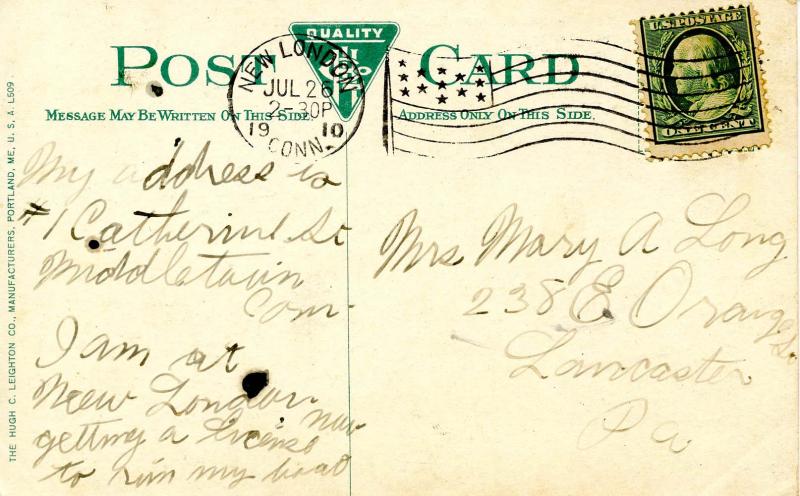 POST CARD
QUALITY
NEW LONDON
JUL 26
2-30P
1910
CONN.
U.S. POSTAGE
ONE CENT
MESSAGE MAY BE WRITTEN ON THIS SIDE
ADDRESS ONLY ON THIS SIDE.
THE HUGH C. LEIGHTON CO., MANUFACTURERS, PORTLAND, ME, U. S. A. L509.
My address is
#1 Catherine St
Middletown
Conn-
I am at
New London now
getting a license
to run my boat
Mrs. Mary A Long
238 E Orange St
Lancaster
Pa